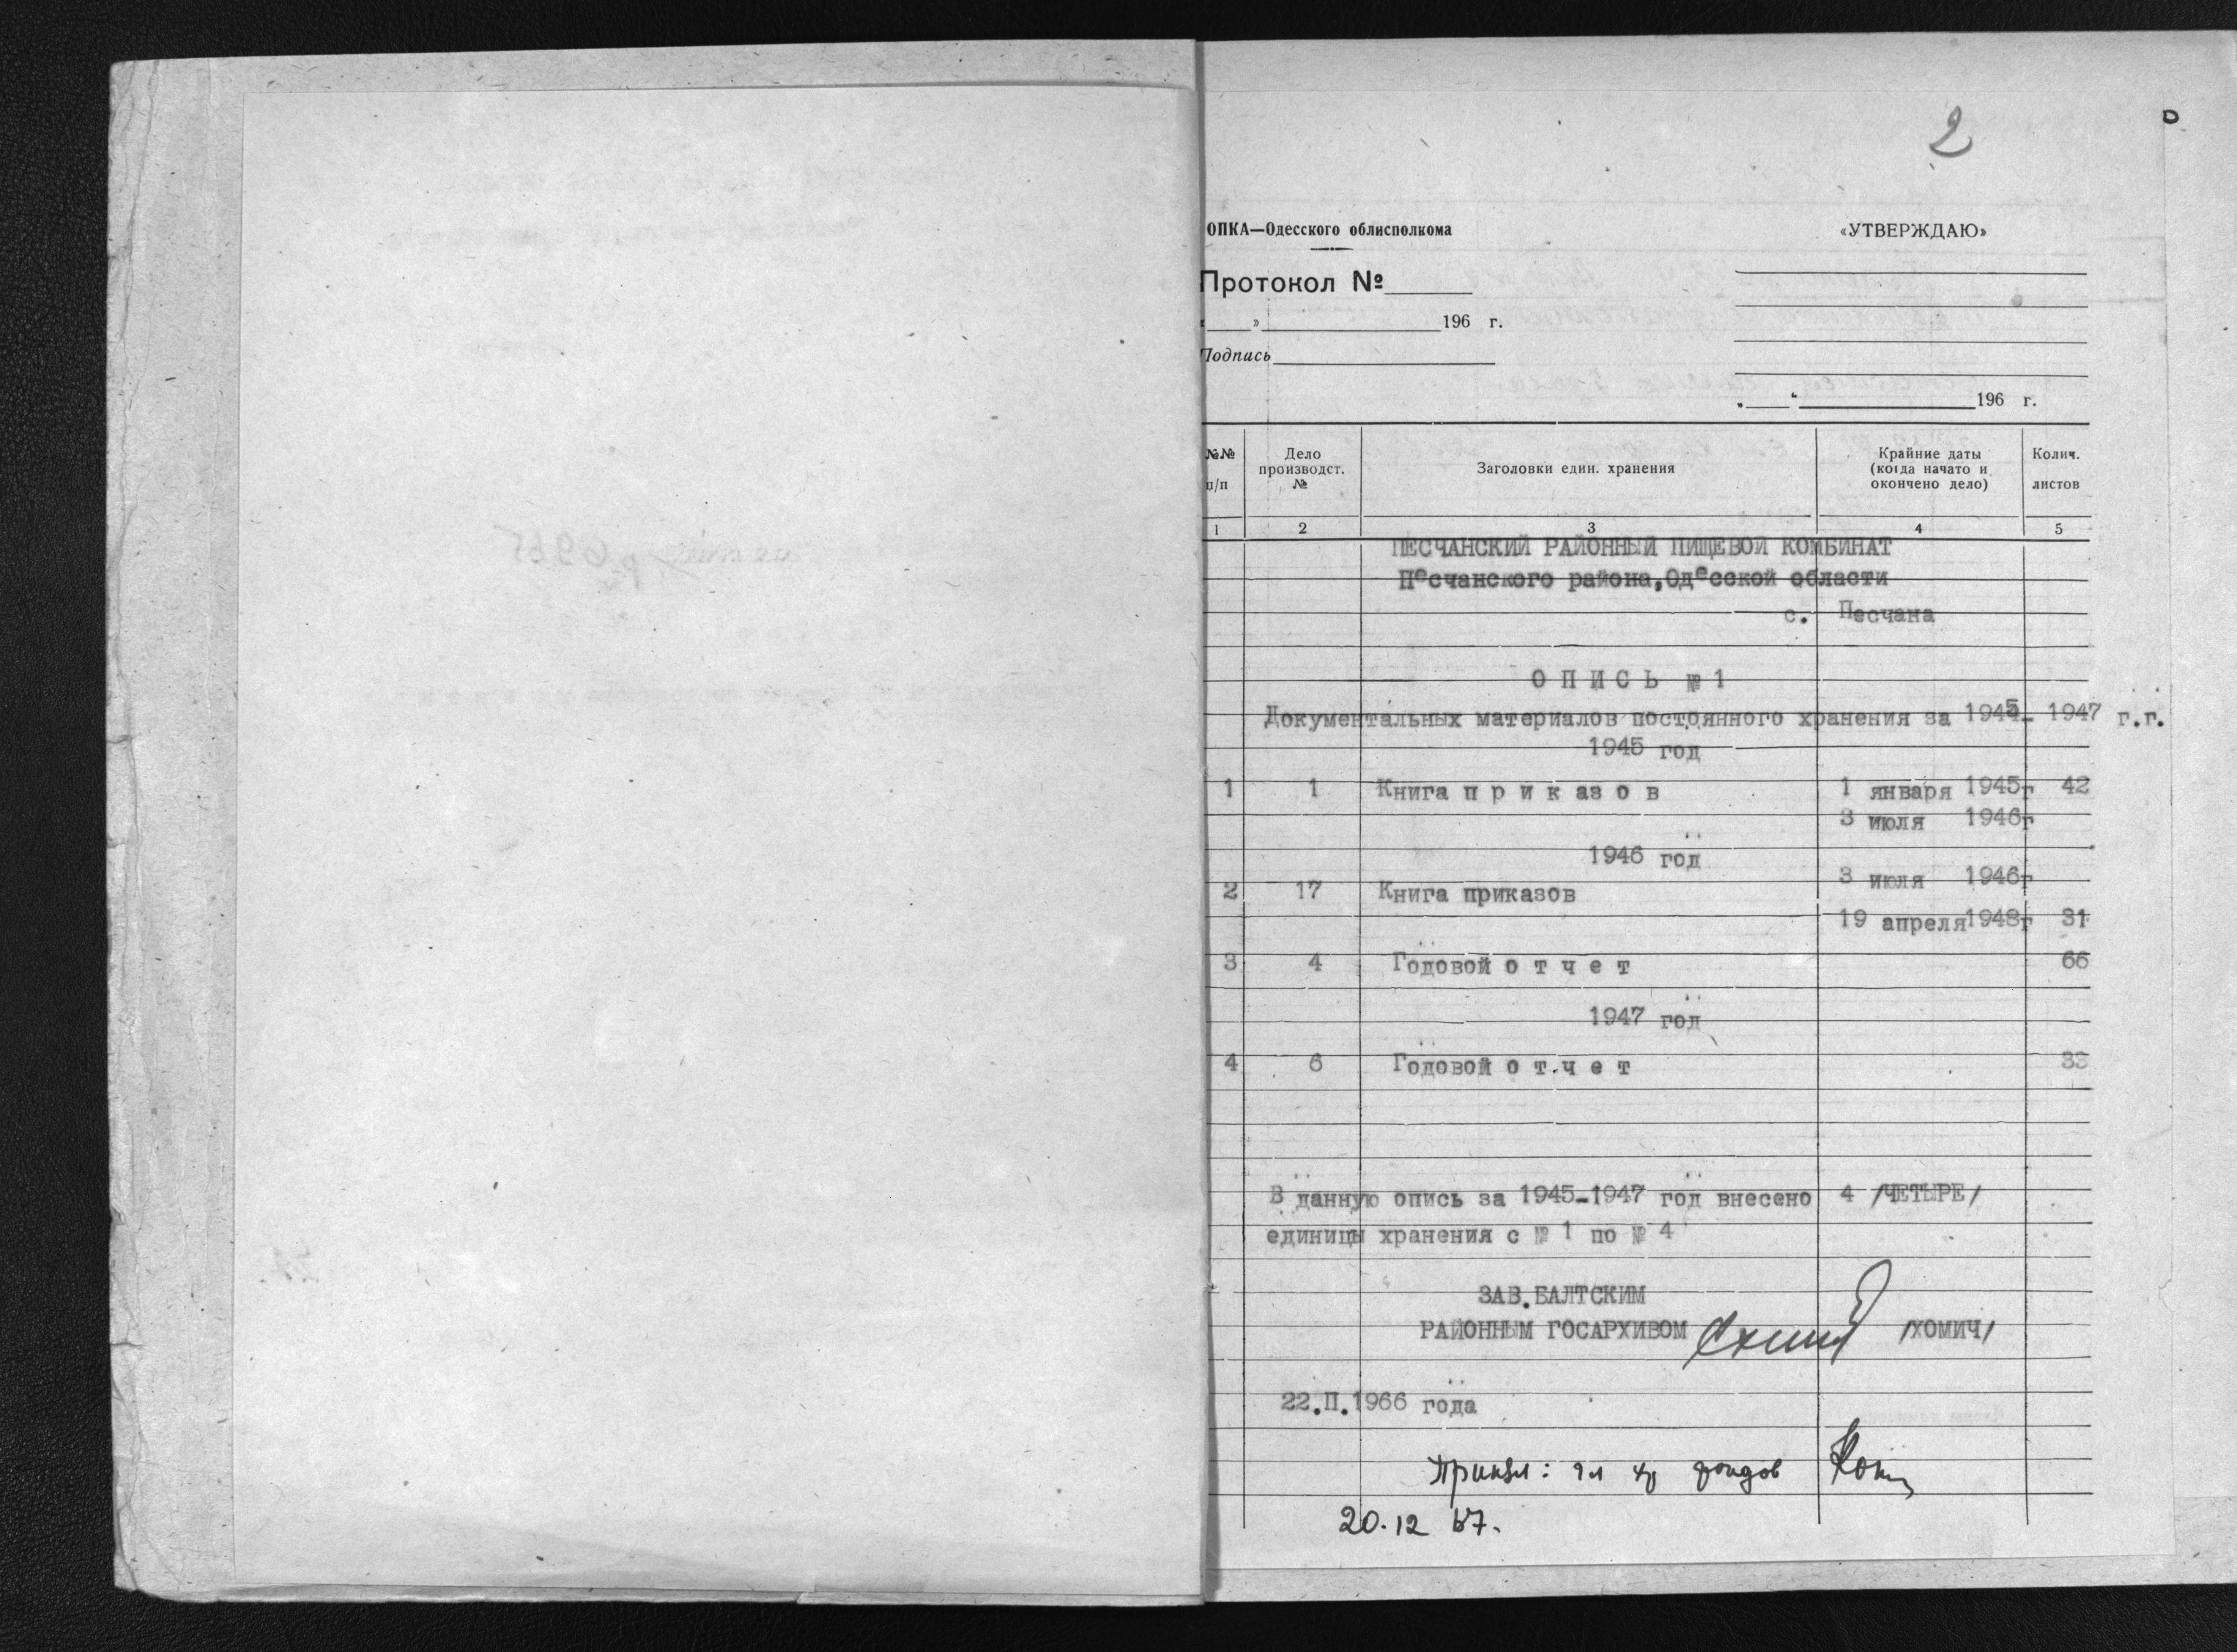 2
ОПКА—Одесского облисполкома
«УТВЕРЖДАЮ»
Протокол №
« » 196 г.
Подпись
„ “ 196 г.
№№ п/п Дело производст. № Заголовки един. хранения Крайние даты (когда начато и окончено дело) Колич. листов
1 2 3 4 5
ПЕСЧАНСКИЙ РАЙОННЫЙ ПИЩЕВОЙ КОМБИНАТ
Песчанского района,Одесской области
с. Песчана
О П И С Ь № 1
Документальных материалов постоянного хранения за 1945- 1947 г.г.
1945 год
1 1 Книга п р и к аз о в 1 января 1945г 42
3 июля 1946г
1946 год
2 17 Книга приказов 3 июля 1946г
19 апреля1948г 31
3 4 Годовой о т ч е т 66
1947 год
4 6 Годовой о т ч е т 33
В данную опись за 1945-1947 год внесено 4 /ЧЕТЫРЕ/
единицы хранения с № 1 по № 4
ЗАВ.БАЛТСКИМ
РАЙОННЫМ ГОСАРХИВОМ /ХОМИЧ/
22.П.1966 года
фондов
20.12 67.